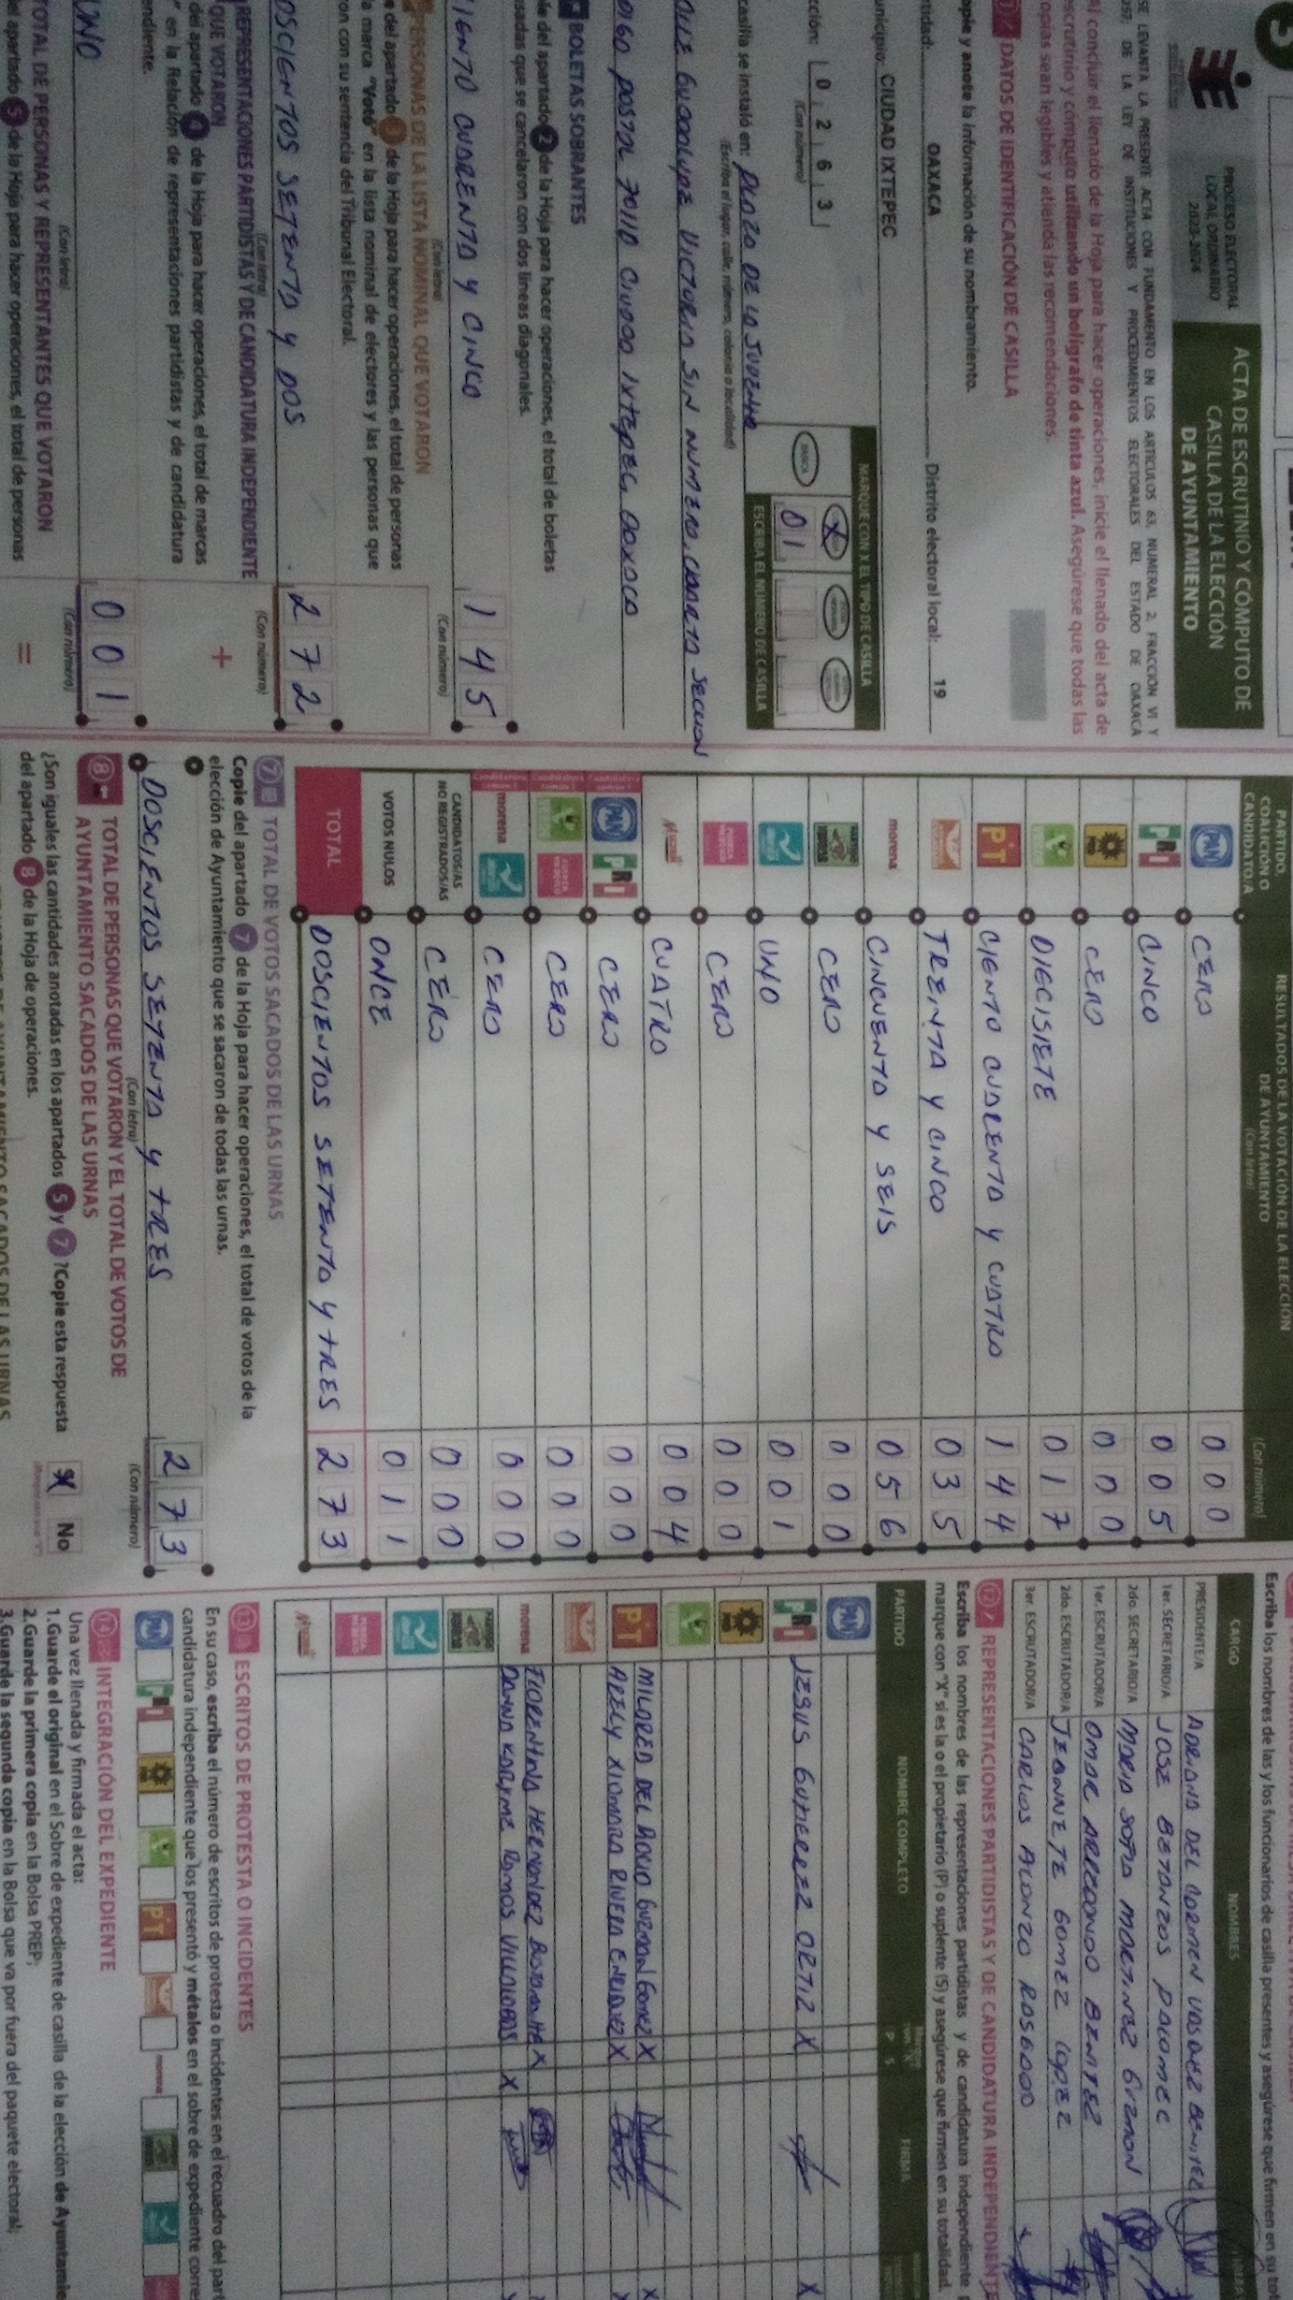 PROCESO ELECTORAL
LOCAL ORDINARIO
2023-2024
ACTA DE ESCRUTINIO Y CÓMPUTO DE
CASILLA DE LA ELECCIÓN
DE AYUNTAMIENTO
SE LEVANTA LA PRESENTE ACTA CON FUNDAMENTO EN LOS ARTÍCULOS 63, NUMERAL 2, FRACCIÓN VI Y
DE LA LEY DE INSTITUCIONES Y PROCEDIMIENTOS ELECTORALES DEL ESTADO DE OAXACA
Al concluir el llenado de la Hoja para hacer operaciones, inicie el llenado del acta de
escrutinio y cómputo utilizando un bolígrafo de tinta azul. Asegúrese que todas las
copias sean legibles y atienda las recomendaciones.
1 DATOS DE IDENTIFICACIÓN DE CASILLA
copie y anote la información de su nombramiento.
tidad: OAXACA Distrito electoral local: 19
unicipio: CIUDAD IXTEPEC
cción: 0 2 6 3
(Con número)
MARQUE CON X EL TIPO DE CASILLA
X
BÁSICA
01
ESCRIBA EL NÚMERO DE CASILLA
casilla se instaló en: PLAZA DE LA
(Escriba el lugar, calle, número, colonia o localidad)
GUADALUPE VICTORIA SIN NUMERO, CUARTA SECCION
DIGO POSTAL 70110 CIUDAD IXTEPEC, OAXACA
BOLETAS SOBRANTES
ie del apartado 2 de la Hoja para hacer operaciones, el total de boletas
sadas que se cancelaron con dos líneas diagonales.
IENTO CUARENTA Y CINCO 145
(Con letra) (Con número)
PERSONAS DE LA LISTA NOMINAL QUE VOTARON
e del apartado 3 de la Hoja para hacer operaciones, el total de personas
la marca "Votó" en la lista nominal de electores y las personas que
on con su sentencia del Tribunal Electoral.
OSCIENTOS SETENTA Y DOS 272
(Con letra) (Con número)
REPRESENTACIONES PARTIDISTAS Y DE CANDIDATURA INDEPENDIENTE
QUE VOTARON
del apartado 4 de la Hoja para hacer operaciones, el total de marcas
" en la Relación de representaciones partidistas y de candidatura
endiente.
+
UNO 001
(Con letra) (Con número)
TOTAL DE PERSONAS Y REPRESENTANTES QUE VOTARON
del apartado 5 de la Hoja para hacer operaciones, el total de personas
=
PARTIDO,
COALICIÓN O
CANDIDATO/A
RESULTADOS DE LA VOTACIÓN DE LA ELECCIÓN
DE AYUNTAMIENTO
(Con letra) (Con número)
PAN CERO 000
PRI CINCO 005
PRD CERO 000
DIECISIETE 017
PT CIENTO CUARENTA Y CUATRO 144
TREINTA Y CINCO 035
morena CINCUENTA Y SEIS 056
CERO 000
UNO 001
CERO 000
CUATRO 004
PAN PRI CERO 000
CERO 000
morena CERO 000
CANDIDATOS/AS
NO REGISTRADOS/AS CERO 000
VOTOS NULOS ONCE 011
TOTAL DOSCIENTOS SETENTA Y TRES 273
7 TOTAL DE VOTOS SACADOS DE LAS URNAS
Copie del apartado 7 de la Hoja para hacer operaciones, el total de votos de la
elección de Ayuntamiento que se sacaron de todas las urnas.
DOSCIENTOS SETENTA Y TRES 273
(Con letra) (Con número)
8 TOTAL DE PERSONAS QUE VOTARON Y EL TOTAL DE VOTOS DE
AYUNTAMIENTO SACADOS DE LAS URNAS
¿Son iguales las cantidades anotadas en los apartados 5 y 7?Copie esta respuesta
del apartado 8 de la Hoja de operaciones.
No
Escriba los nombres de las y los funcionarios de casilla presentes y asegúrese que firmen en su tot
CARGO NOMBRES
PRESIDENTE/A ADRIANA DEL CARMEN VASQUEZ BENITEZ
1er. SECRETARIO/A JOSE BETANZOS PALOMEC
2do. SECRETARIO/A MARIA SOFIA MARTINEZ GUZMAN
1er. ESCRUTADOR/A OMAR ARREDONDO BENITEZ
2do. ESCRUTADOR/A JEANNETE GOMEZ LOPEZ
3er. ESCRUTADOR/A CARLOS ALONZO ROSGADO
12 REPRESENTACIONES PARTIDISTAS Y DE CANDIDATURA INDEPENDIENTE
Escriba los nombres de las representaciones partidistas y de candidatura independiente
marque con "X" si es la o el propietario (P) o suplente (S) y asegúrese que firmen en su totalidad.
PARTIDO NOMBRE COMPLETO P S FIRMA
PAN
PRI JESUS GUTIERREZ ORTIZ X X
PRD
PT MILDRED DEL ROCIO GUZMAN GOMEZ X X
ARELY XIOMARA RIVERA X
morena FLORENTINA HERNANDEZ X
DANNA KARYME RAMOS VILLALOBOS X
13 ESCRITOS DE PROTESTA O INCIDENTES
En su caso, escriba el número de escritos de protesta o incidentes en el recuadro del part
candidatura independiente que los presentó y métalos en el sobre de expediente corres
PAN PRI PRD PT morena
14 INTEGRACIÓN DEL EXPEDIENTE
Una vez llenada y firmada el acta:
1.Guarde el original en el Sobre de expediente de casilla de la elección de Ayuntamie
2.Guarde la primera copia en la Bolsa PREP;
3.Guarde la segunda copia en la Bolsa que va por fuera del paquete electoral;